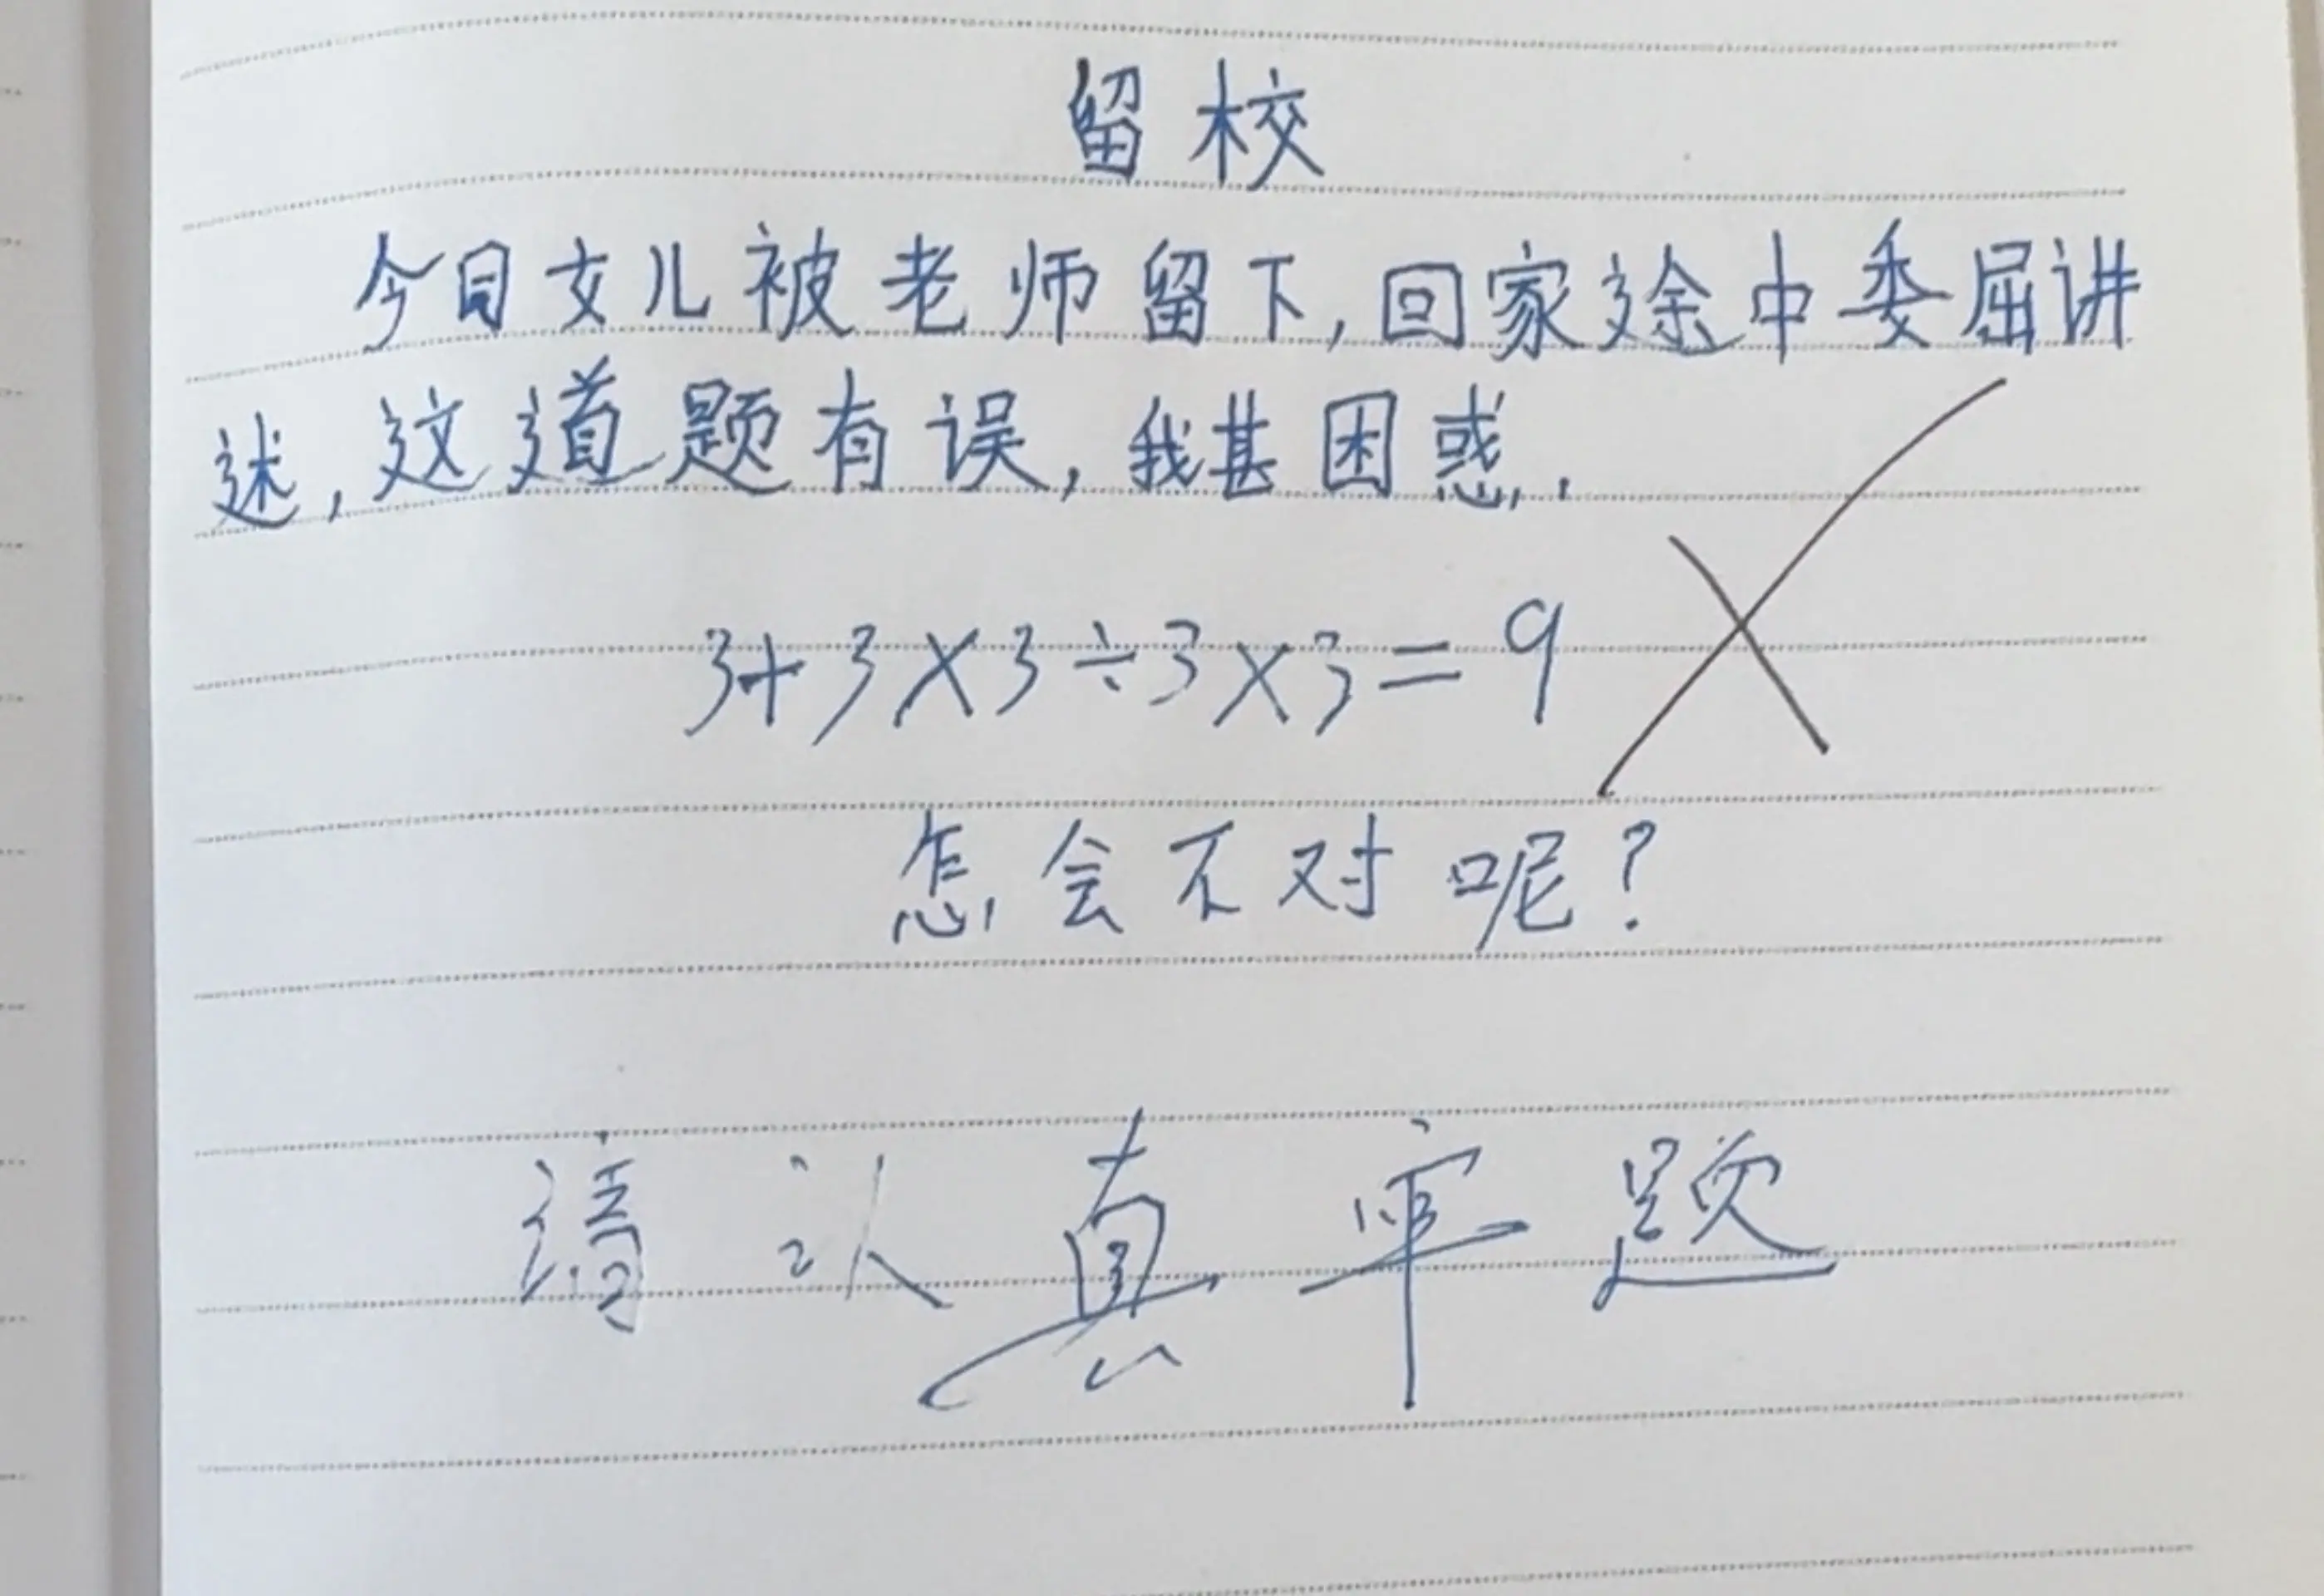 留校
今日女儿被老师留下,回家途中委屈讲
述,这道题有误,我甚困惑.
3+3×3÷3×3=9
怎会不对呢?
请认真审题